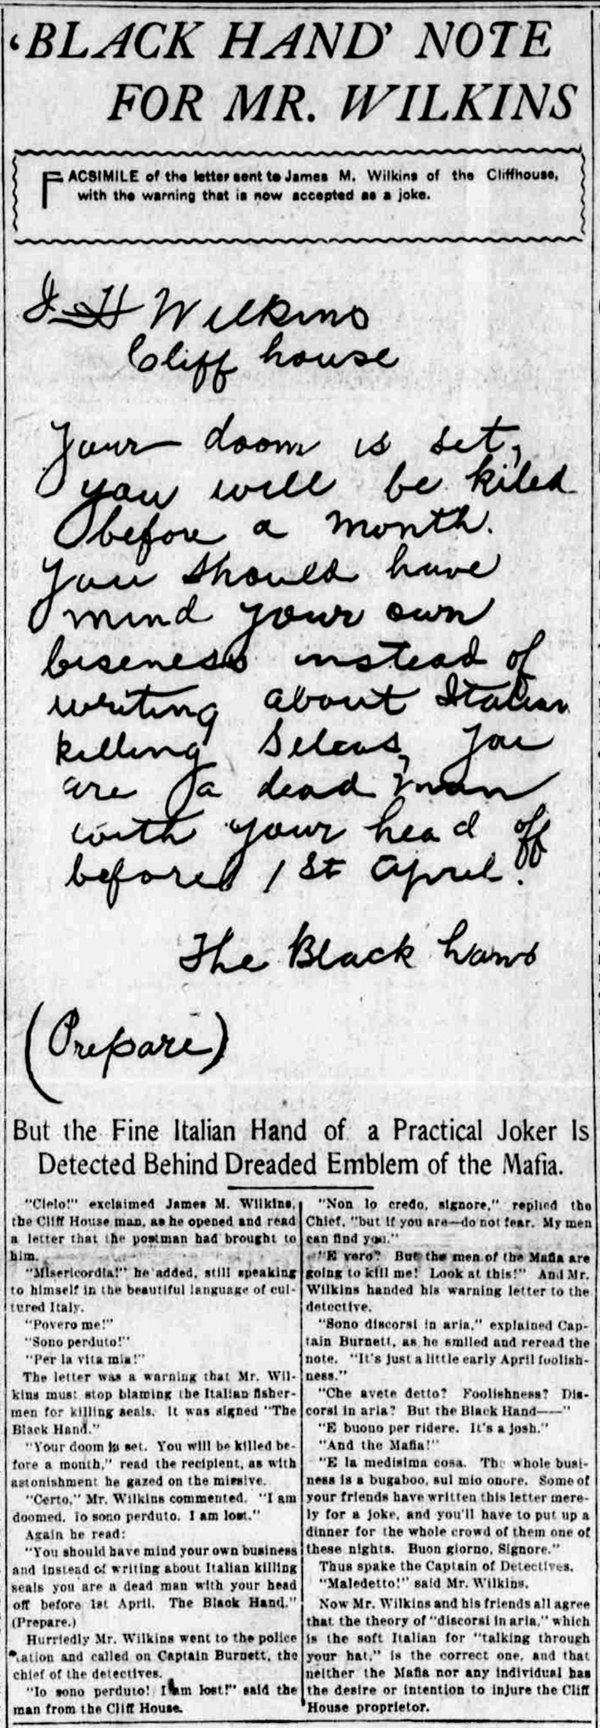 'BLACK HAND' NOTE
FOR MR. WILKINS
FACSIMILE of the letter sent to James M. Wilkins of the Cliffhouse,
with the warning that is now accepted as a joke.
J H Wilkins
Cliff house
Your doom is set,
you will be kiled
before a month.
You should have
mind your own
biseness instead of
writing about Italian
killing Seleas, you
are a dead man
with your head off
before 1 St April.
The Black hand
(Prepare)
But the Fine Italian Hand of a Practical Joker Is
Detected Behind Dreaded Emblem of the Mafia.
"Cielo!" exclaimed James M. Wilkins,
the Cliff House man, as he opened and read
a letter that the postman had brought to
him.
"Misericordia!" he added, still speaking
to himself in the beautiful language of cul-
tured Italy.
"Povero me!"
"Sono perduto!"
"Per la vita mia!"
The letter was a warning that Mr. Wil-
kins must stop blaming the Italian fisher-
men for killing seals. It was signed "The
Black Hand."
"Your doom is set. You will be killed be-
fore a month," read the recipient, as with
astonishment he gazed on the missive.
"Certo," Mr. Wilkins commented. "I am
doomed. Io sono perduto. I am lost."
Again he read:
"You should have mind your own business
and instead of writing about Italian killing
seals you are a dead man with your head
off before 1st April. The Black Hand."
(Prepare.)
Hurriedly Mr. Wilkins went to the police
station and called on Captain Burnett, the
chief of the detectives.
"Io sono perduto! I am lost!" said the
man from the Cliff House.
"Non lo credo, signore," replied the
Chief, "but if you are—do not fear. My men
can find you."
"E vero? But the men of the Mafia are
going to kill me! Look at this!" And Mr.
Wilkins handed his warning letter to the
detective.
"Sono discorsi in aria," explained Cap-
tain Burnett, as he smiled and reread the
note. "It's just a little early April foolish-
ness."
"Che avete detto? Foolishness? Dis-
corsi in aria? But the Black Hand——"
"E buono per ridere. It's a josh."
"And the Mafia!"
"E la medisima cosa. The whole busi-
ness is a bugaboo, sul mio onore. Some of
your friends have written this letter mere-
ly for a joke, and you'll have to put up a
dinner for the whole crowd of them one of
these nights. Buon giorno, Signore."
Thus spake the Captain of Detectives.
"Maledetto!" said Mr. Wilkins.
Now Mr. Wilkins and his friends all agree
that the theory of "discorsi in aria," which
is the soft Italian for "talking through
your hat," is the correct one, and that
neither the Mafia nor any individual has
the desire or intention to injure the Cliff
House proprietor.